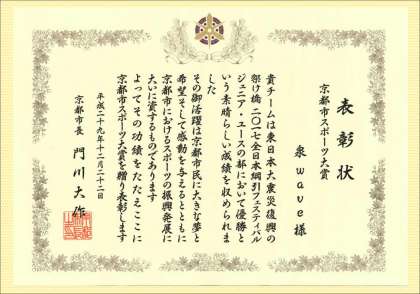 表彰状
京都市スポーツ大賞
泉wave様
貴チームは東日本大震災復興の
架け橋二〇一七全日本綱引フェスティバル
ジュニア・ユースの部において優勝と
いう素晴らしい成績を収められま
した
その御活躍は京都市民に大きな夢と
希望そして感動を与えるとともに
京都市におけるスポーツの振興発展に
大いに資するものであります
よってその功績をたたえここに
京都市スポーツ大賞を贈り表彰します
平成二十九年十二月二十二日
京都市長 門川大作